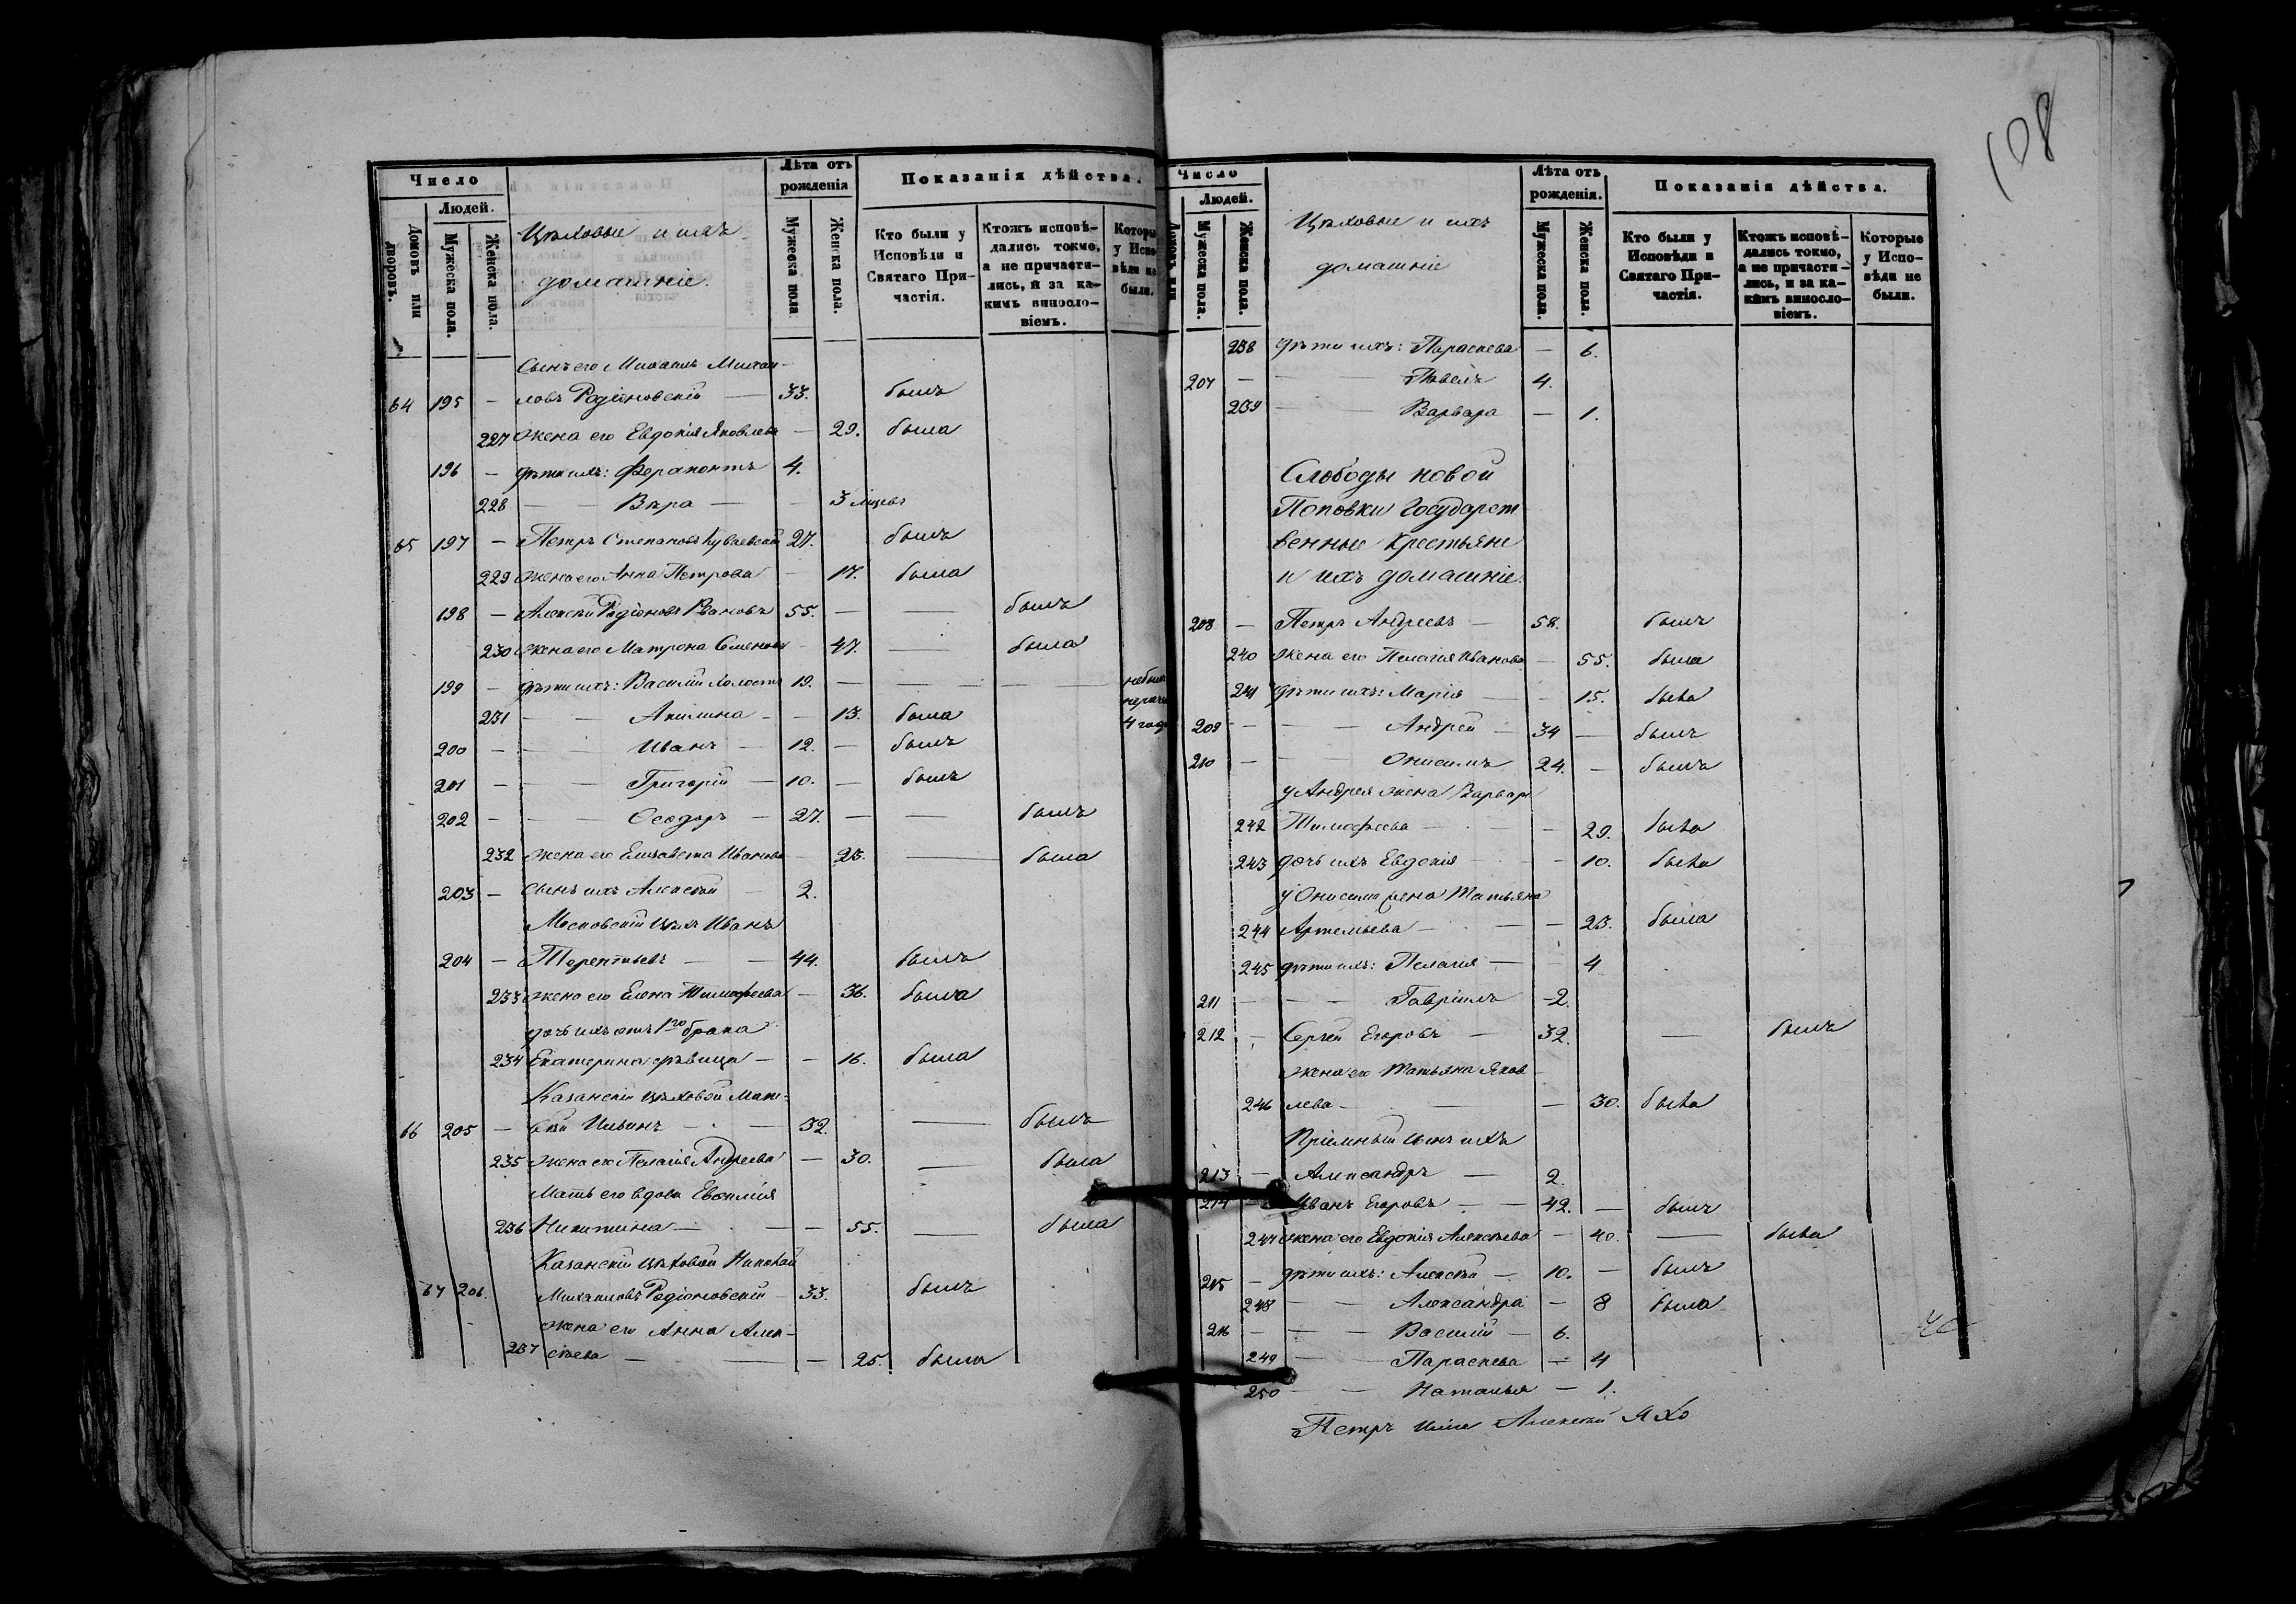 Число
Людей.
Домовъ или дворовъ.
Мужеска пола.
Женска пола.
Цѣховые и ихъ
домашніе.
Лѣта отъ
рожденія
Мужеска пола
Женска пола.
Показанія дѣйства.
Кто были у
Исповѣди и
Святаго При-
частія.
Ктожъ исповѣ-
дались токмо,
а не причасти-
лись, и за ка-
кимъ винсло-
віемъ.
Которы
у Испо-
вѣди не
были.
Сынъ его Михаилъ Михаи-
64 195 — ловъ Родіоновскій — 33. былъ
227 жена его Евдокія Яковлева — 29. была
196 — дѣти ихъ: Ферапонтъ 4.
228 — — Вѣра — — 3 мцевъ
65 197 — Петръ Степановъ 27. былъ
229 жена его Анна Петрова — 17. была
198 — Алексѣй Родіоновъ 55. — — былъ
230 жена его Матрона Семенова — 47. — была
199 — дѣти ихъ: Василій холостъ 19. — — — небылъ
4 года
231 — — Акилина — — 13. была
200 — — Иванъ — 12. — былъ
201 — — Григорій — 10. — былъ
202 — — — Ѳеодоръ — 27. — — былъ
232 жена его Елизавета Иванова — 23. — была
203 — сынъ ихъ Алексѣй — 2.
Московскій цѣх. Иванъ
204 — Терентьевъ — — 44. былъ
233 жена его Елена Тимофеева — 36. была
дочь ихъ отъ 1го брака
234 Екатерина дѣвица — — 16. была
Казанскій цѣховой Мат-
66 205 — вѣй Ильинъ — — 32. — былъ
235 жена его Пелагія Андреева — 30. — была
Мать его вдова Евфимія
236 Никитина — — — 55. — была
Казанскій цѣховой Николай
67 206. Михаиловъ Родіоновскій — 33. былъ
жена его Анна Алек-
237 сѣева — — — 25. была
108
Число
Людей.
Домовъ или
Мужеска пола.
Женска пола.
Цѣховые и ихъ
домашніе
Лѣта отъ
рожденія.
Мужеска пола.
Женска пола.
Показанія дѣйства.
Кто были у
Исповѣди и
Святаго При-
частія.
Ктожъ исповѣ-
дались токмо,
а не причасти-
лись, и за ка-
кимъ винсло-
віемъ.
Которые
у Испо-
вѣди не
были.
238 дѣти ихъ: Параскева — 6.
207 — — Павелъ 4.
239 — — Варвара — 1.
Слободы новой
Поповки Государст
венные Крестьяне
и ихъ домашніе.
208 — Петръ Андреевъ — 58. былъ
240 жена его Пелагія Иванова — 55. была
241 дѣти ихъ: Марія — — 15. была
209 — — — Андрей — 34 — былъ
210 — — — Онисимъ 24. — былъ
у Андрея жена Варвара
242 Тимофеева — — — 29. была
243 дочь ихъ Евдокія — — 10. была
у Онисима жена Татьяна
244 Артемьева — — — 23. была
245 дѣти ихъ: Пелагія — — 4
211 — — — Гавріилъ — 2.
212 — Сергѣй Егоровъ — 32. — былъ
жена его Татьяна Яков-
246 лева — — — 30. была
Пріемный сынъ ихъ
213 — Александръ — 2.
214 — Иванъ Егоровъ — — 42. — былъ
247 жена его Евдокія Алексѣева — 40. — была
215 — дѣти ихъ: Алексѣй — 10. — былъ
248 — — Александра — 8 была
216 — — — Василій — 6.
249 — — Параскева — 4
250 — — Наталья — 1.
Петръ Алексѣй